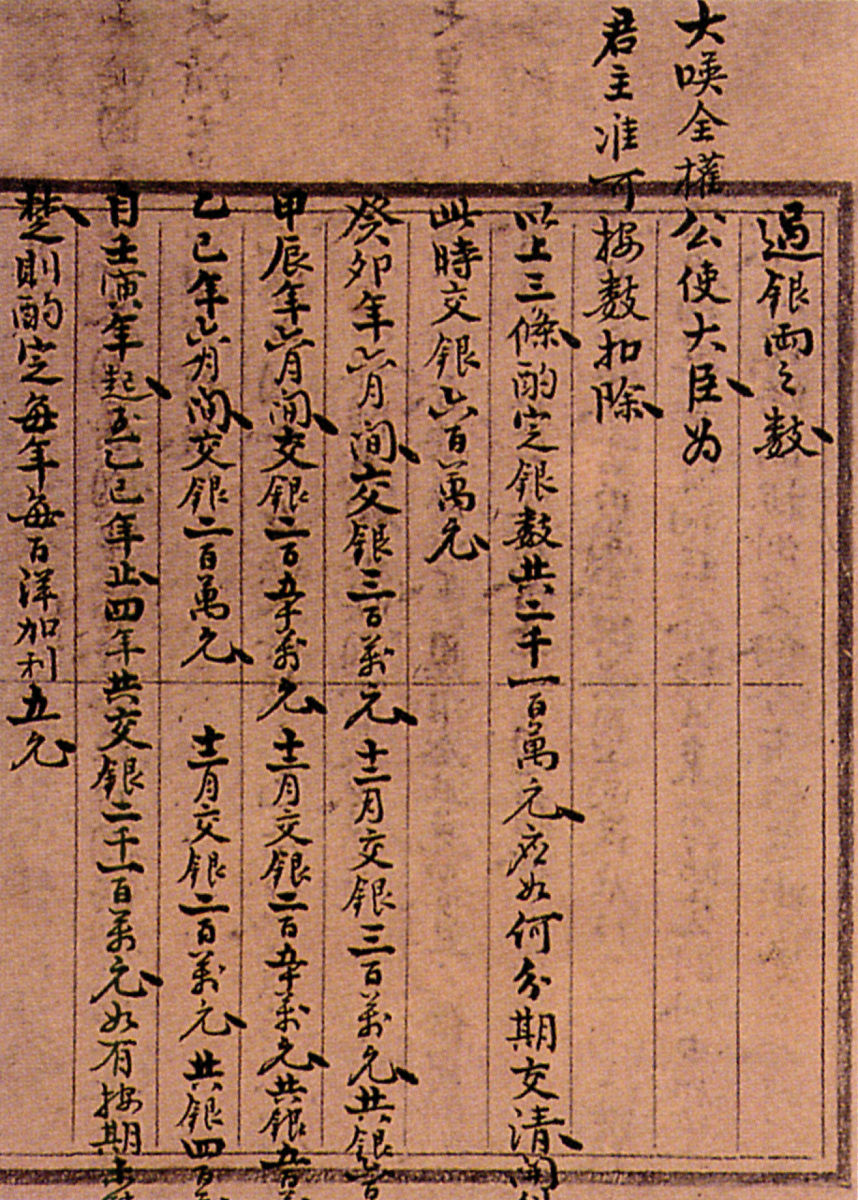 過銀兩之數
大𠸄全權公使大臣為
君主准可按數扣除
以上三條酌定銀數共二千一百萬元應如何分期交清開
此時交銀六百萬元
癸卯年六月間交銀三百萬元 十二月交銀三百萬元共銀
甲辰年六月間交銀二百五十萬元 十二月交銀二百五十萬元共銀五百
乙巳年六月間交銀二百萬元 十二月交銀二百萬元 共銀四百
自壬寅年起至乙巳年止四年共交銀二千一百萬元如有按期未
楚則酌定每年每百洋加利五元